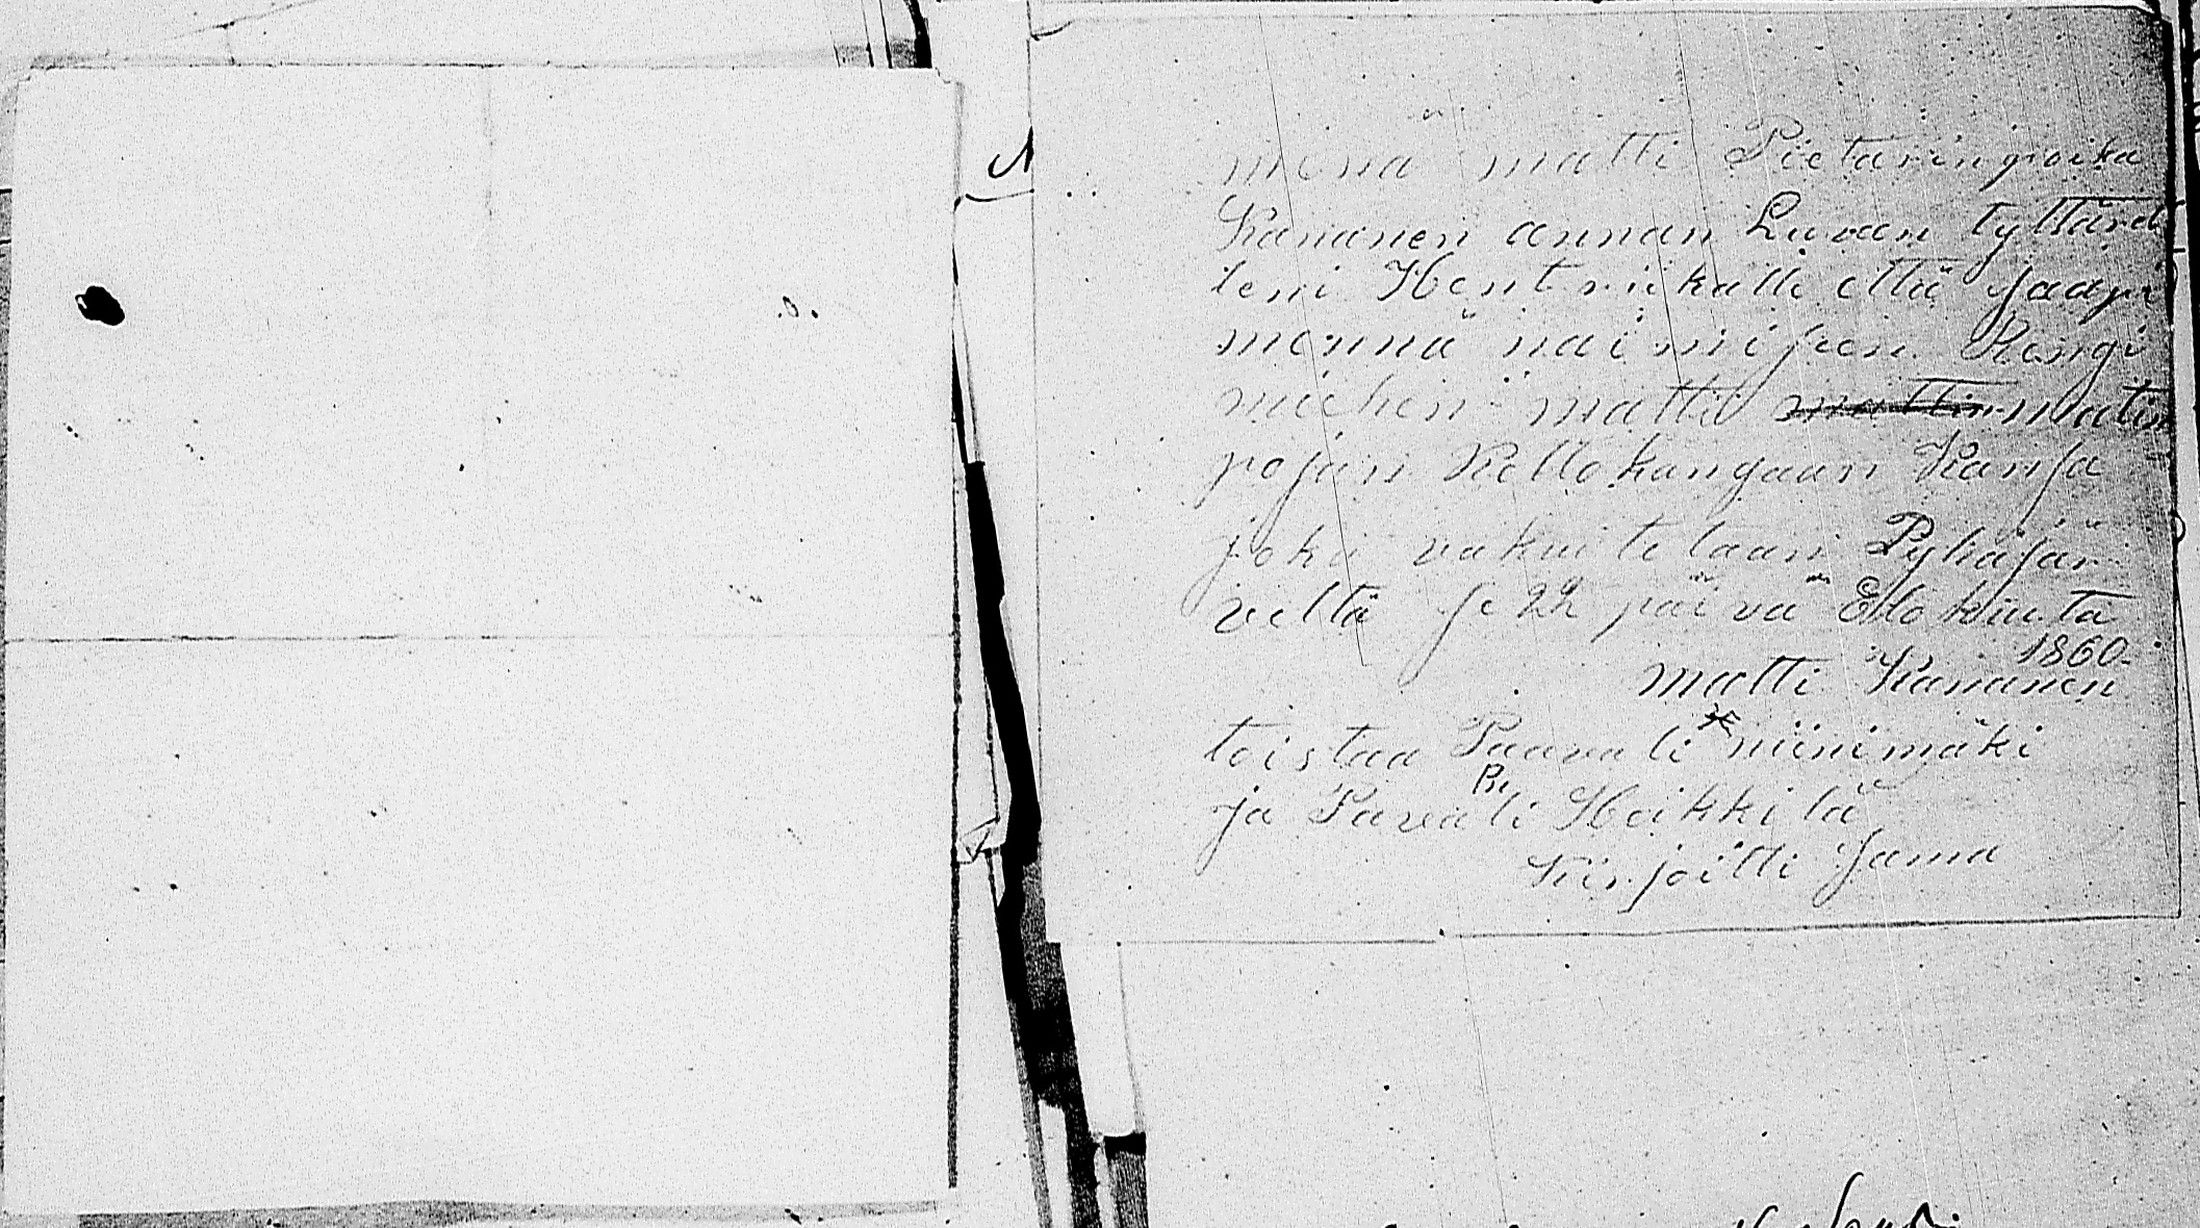 minä matti Pietarin poika
Kananen annan Luvan tyttärel
leni Hentriikalle että saapi
mennä naimiseen Rengi
miehen matti matin
pojan Kellokangaan Kansa
joka vakuutetaan Pyhäjär
veltä se 22 päivä Elokuuta
1860.
matti Kananen
toistaa Paavali niinimäki
ja Pavali Heikkilä
Kirjoitti sama